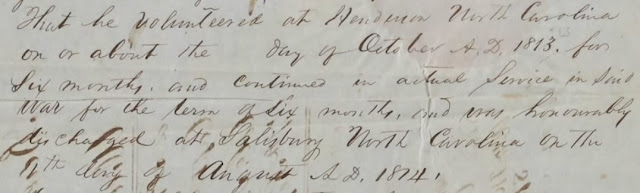 That he volunteered at Henderson North Carolina
on or about the day of October A.D. 1813. for
Six months. and continued in actual Service in Said
War for the term of Six months, and was honourably
discharged at Salisbury North Carolina on the
day of August A.D. 1814.